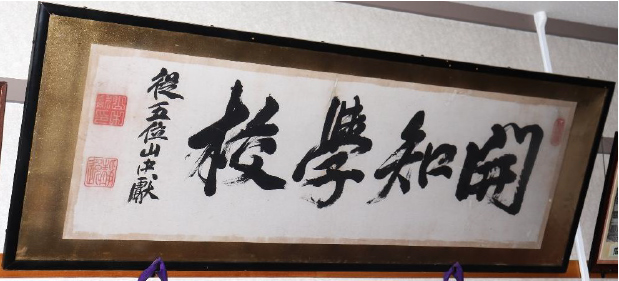 開知學校
從五位山中獻